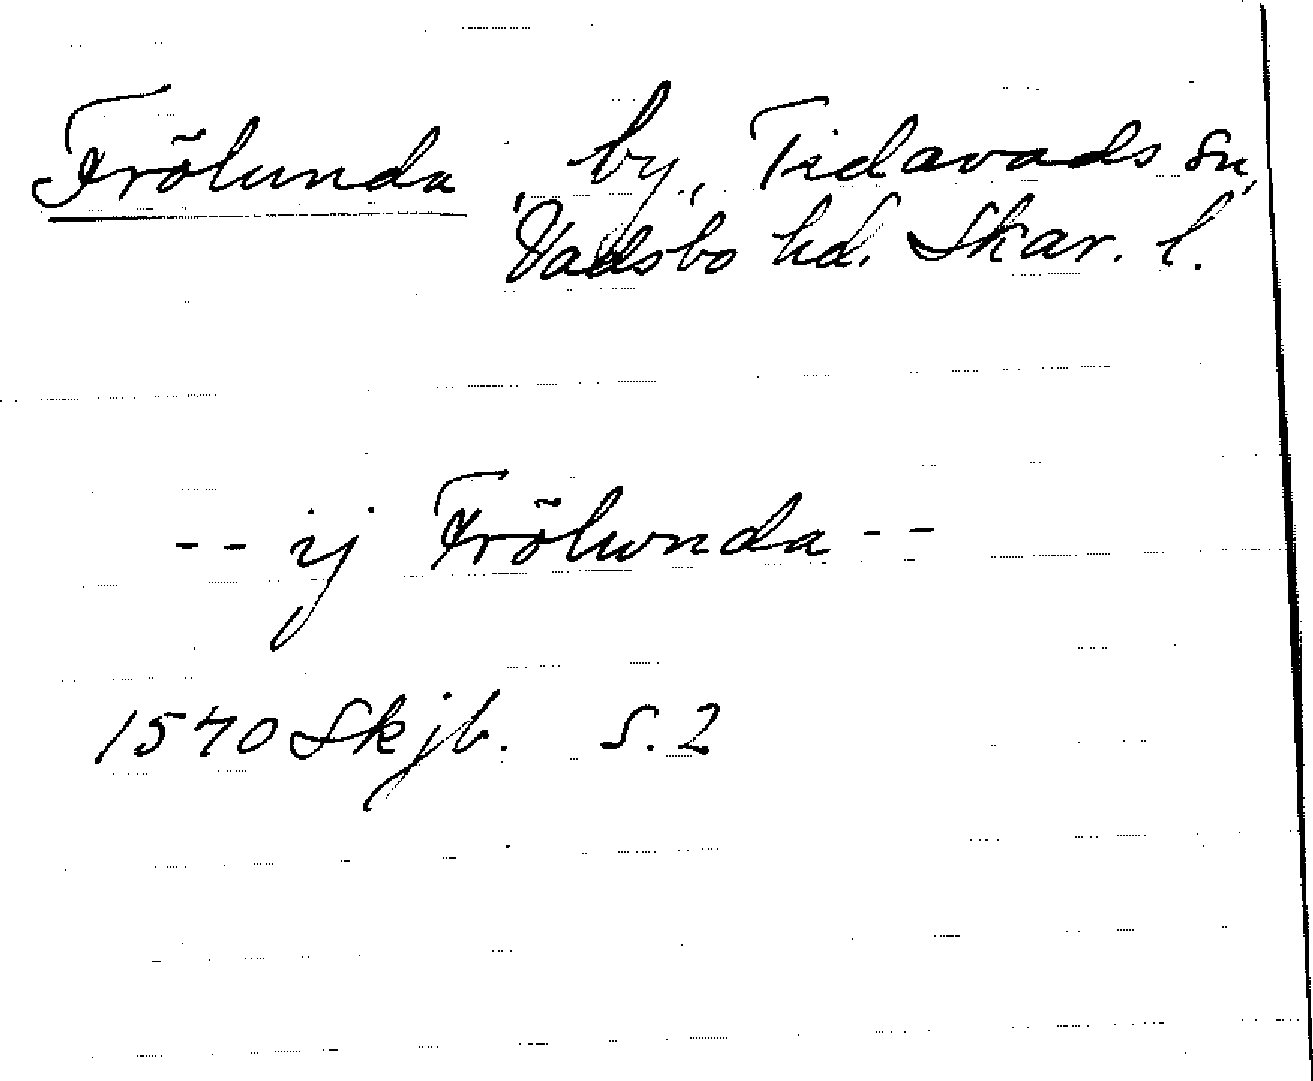 Frölunda by, Tidavads sn,
Vadsbo hd. Skar. l.
-- ij Frölunda --
1540 Skjb. S. 2